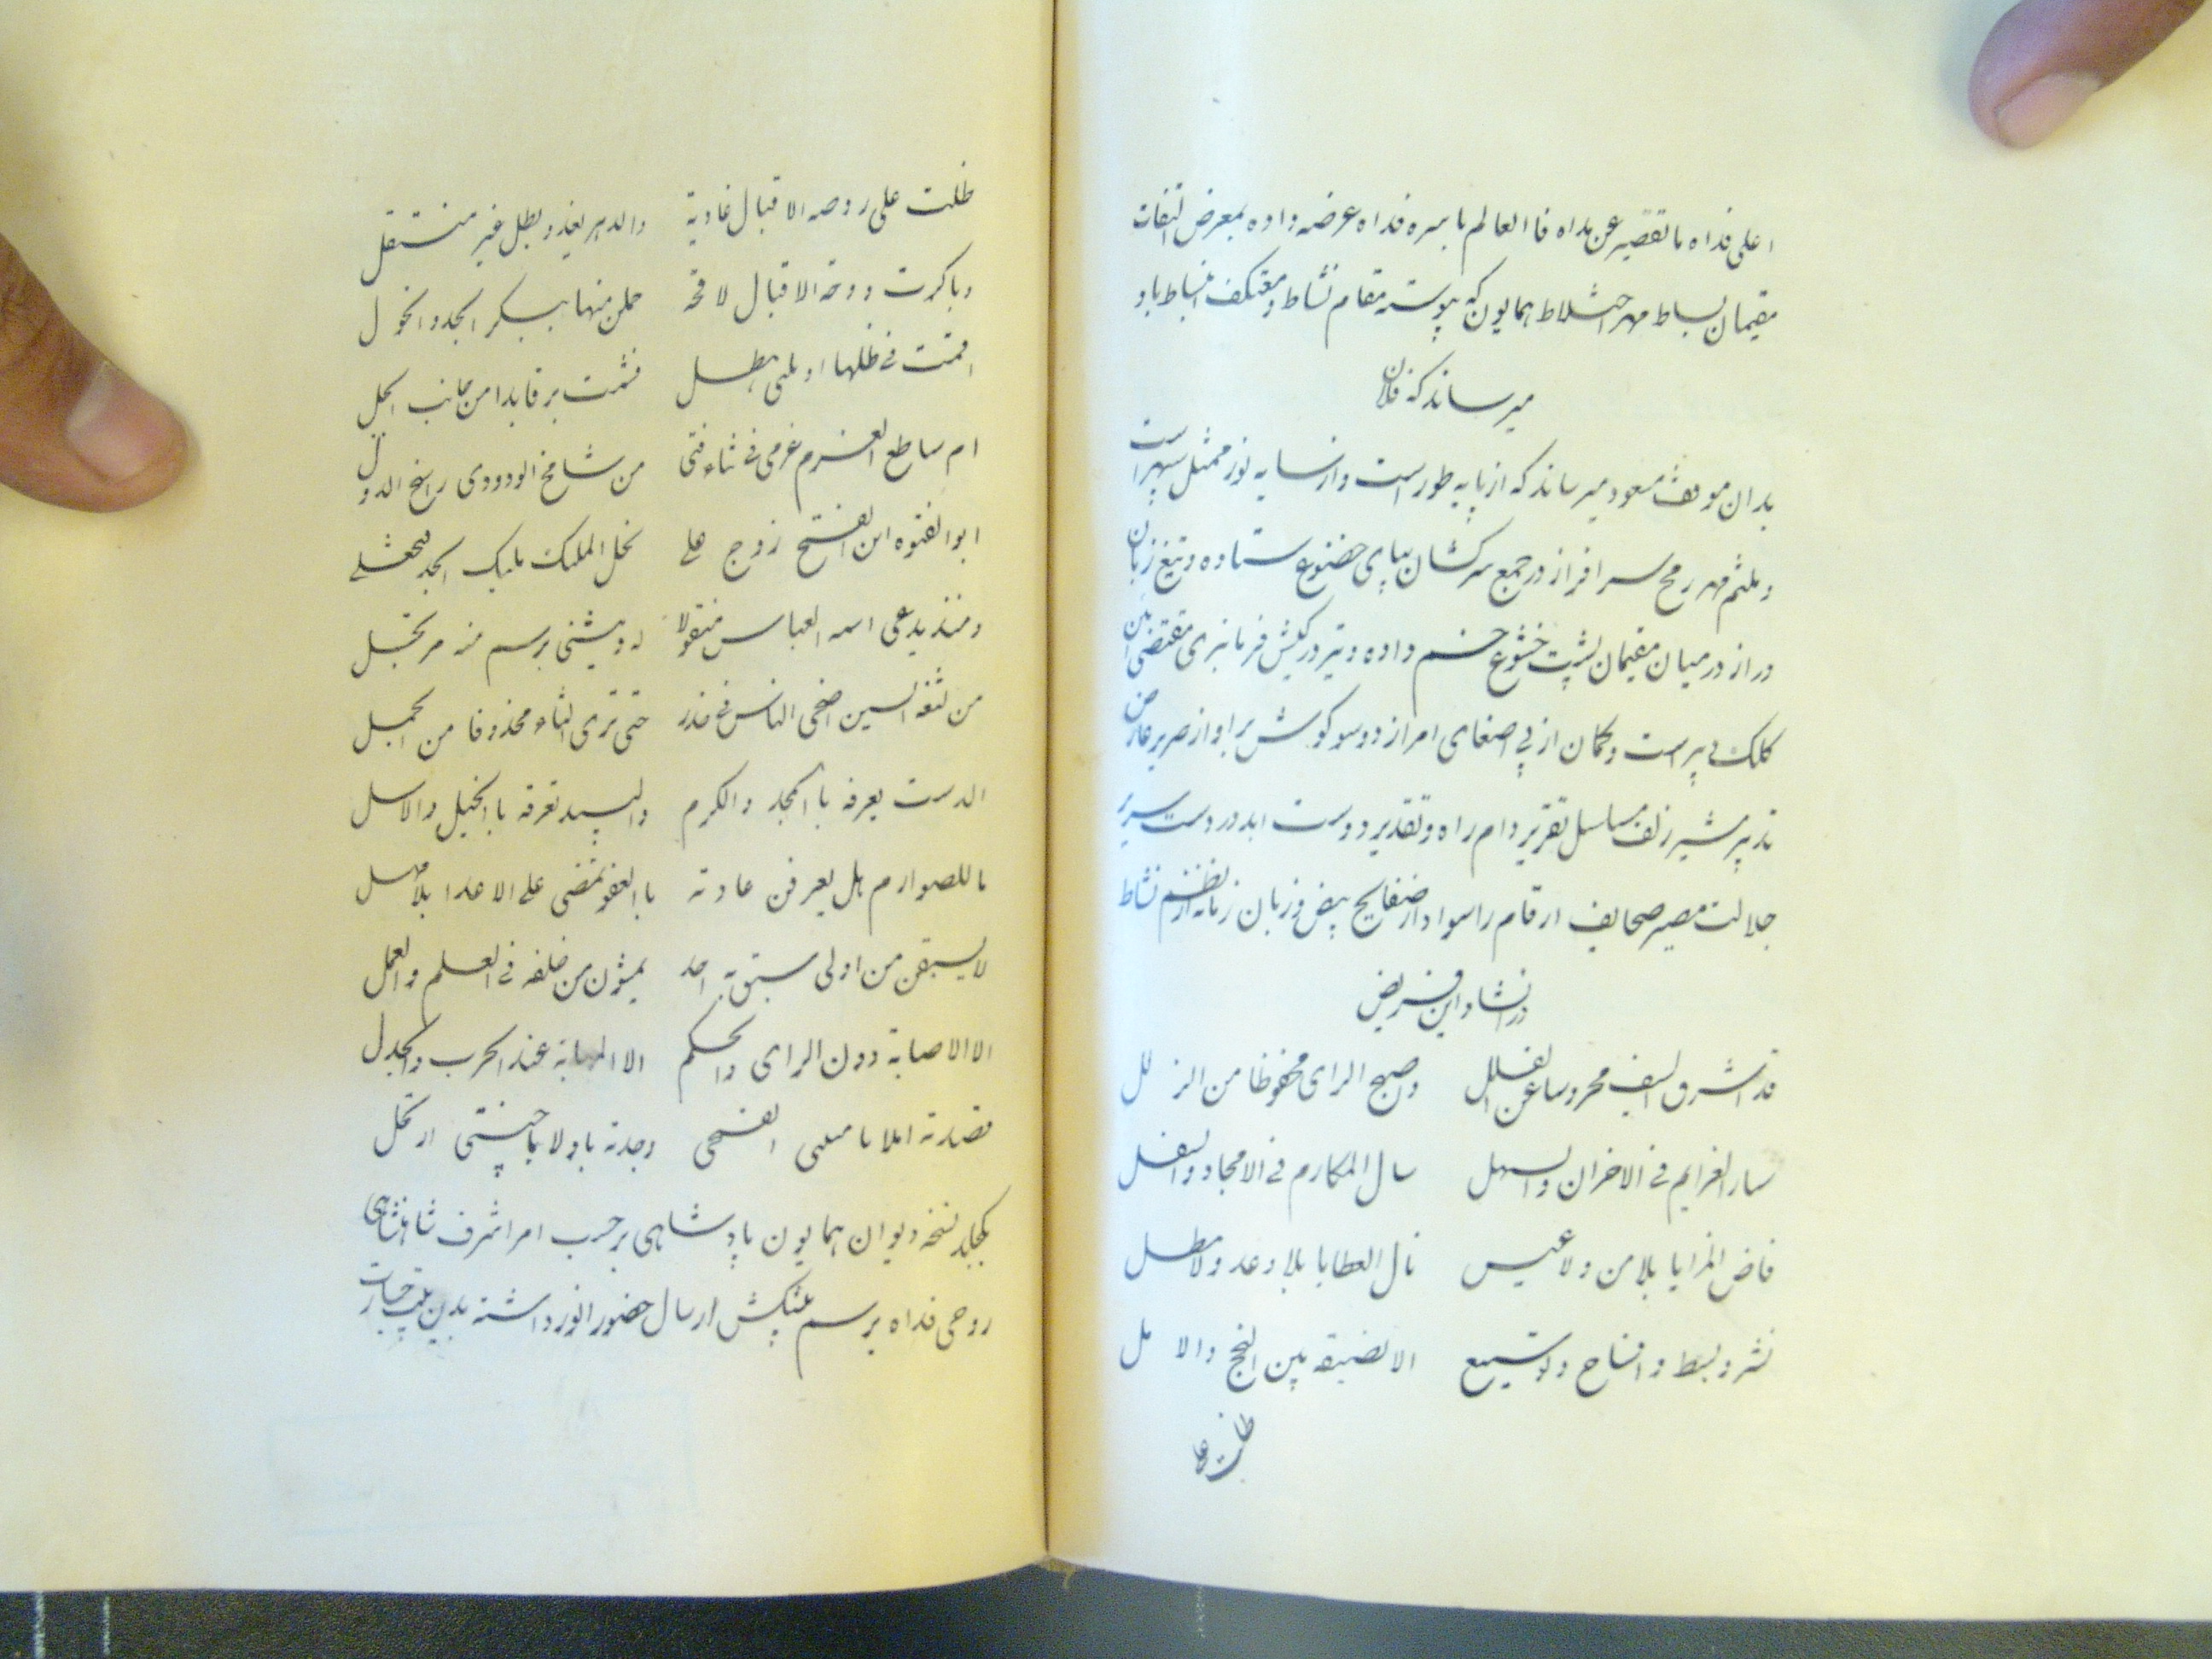 اعلی فداه ما تقصیر عن مداه فا العالم با سره فداه عرضه داده بمعرض التفات
مقیمان بساط مهر اختلاط همایون که پیوسته مقام نشاط و معتکف انبساط باد
میرساند که فلان
بدان موقف مسعود میرساند که از پایه طور است و از سایه نور ممثل سپهر است
و ملثم مهر رمح سرافراز در جمع سرکشان بپای خضوع ستاده و تیغ زبان
دراز در میان مقیمان پشت خشوع خم داده و تیر در کیش فرمانبری مقتضی این
کلک پی پر است و کمان از پی اصغای امر از دو سو گوش بر آواز صریر عارض
تدبیر مشیر زلف مسلسل تقریر دام راه و تقدیر دوست ابد در دست سریر
جلالت مصیر صحایف ارقام را سواد از صفایح بیض و زبان زمانه از نظم نشاط
در انشاد این قریض
قد اشرق السیف محروسا عن الفلل واصبح الرای محفوظا من الزلل
سار العزایم فی الاحزان والسهل سال المکارم فی الامجاد والسفل
فاض المزایا بلا من ولا عیس نال العطایا بلا وعد ولا مطل
نشر و بسط و افساح و توسیع الا لضیقه بین النجح والامل
ظلت علی
ظلت علی روضه الاقبال غادیة والدهر یغدو بطل غیر منتقل
وباکرت دوحة الاقبال لاقحة حملن منها بسکر المجد والخول
اقمت فی ظلها او بلنی هطل فشمت برقا بدا من جانب الجبل
ام ساطع العزم غرمی فی ثناء فتی من شامخ الودودی راسخ الدول
ابو الفتوه ابن الفتح زوج علی نخل الملک ملیک المجد
ومنذ یدعی اسمه العباس منقولا له ویثنی برسم منه مرتجل
من ثغه السین اضحی الناس فی حذر حتی تری الثاء محذوفا من الجمل
الدست یعرفه با المجد والکرم والبید تعرفه با الخیل والاسل
ما للصوارم هل یعرفن عادته با العفو تمضی علی الاعدا بلا مهل
لا یسبقن من اولی سبق به احد یمشون من خلفه فی العلم والعمل
الا الاصابة دون الرای والحکم الا المهابة عند الحرب والجدل
قصدته املا یا مبلغی وجدته یا ولا یا ارتحل
یکجلد نسخه دیوان همایون پادشاهی بر حسب امر اشرف شاهنشاهی
روحی فداه برسم پیشکش ارسال حضور انور داشته بدین